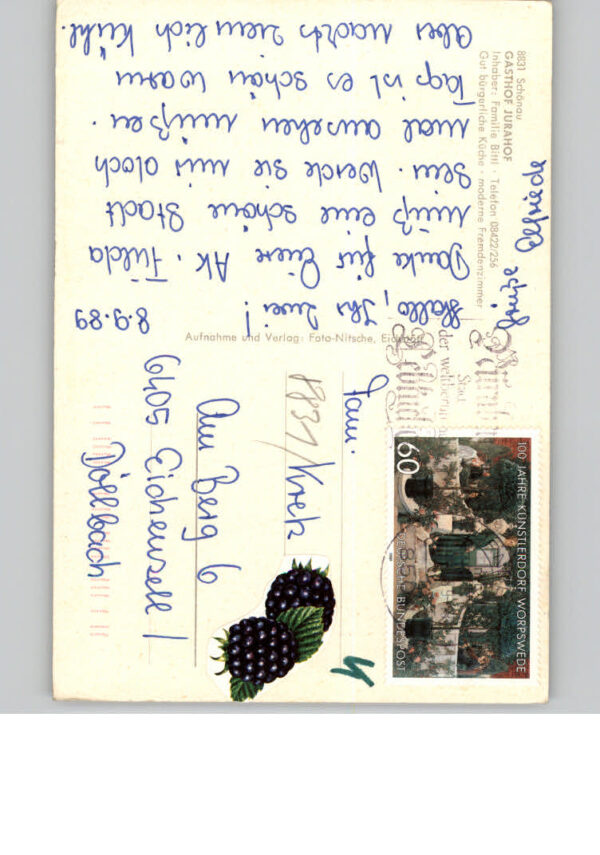 8831 Schönau
GASTHOF JURAHOF
Inhaber: Familie Bittl · Telefon 08422/256
Gut bürgerliche Küche · moderne Fremdenzimmer
8.9.89
Hallo, Ihr zwei!
Danke für Eure AK. Fulda
muß eine schöne Stadt
sein. Werde sie mir doch
mal ansehen müßen.
Tags ist es schön warm
aber nachts ziemlich kühl.
Grüße
Aufnahme und Verlag: Foto-Nitsche,
Stadt
der
100 JAHRE KÜNSTLERDORF WORPSWEDE
60
DEUTSCHE BUNDESPOST
Fam.
8831/Kretz
Am Berg 6
6405 Eichenzell /
Döllbach